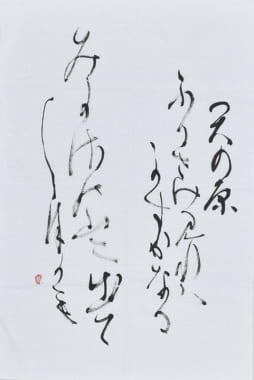 天の原
ふりさけ見れば
かすがなる
みかさの山に出て
し月かも